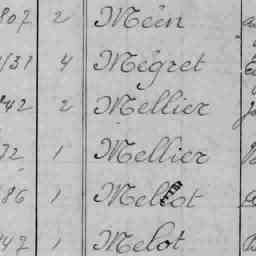 807 2 Mein
431 4 Mégret
742 2 Mellier
72 1 Mellier
86 1 Mellot
47 1 Melot